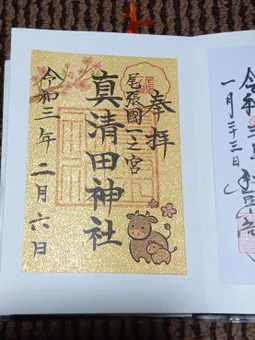 奉拝
尾張國一之宮
真清田神社
令和三年二月六日
一月二十三日